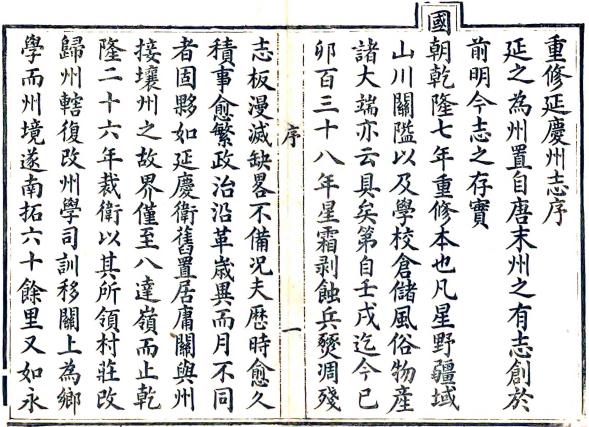 重修延慶州志序
延之為州置自唐末州之有志創於
前明今志之存實
國朝乾隆七年重修本也凡星野疆域
山川關隘以及學校倉儲風俗物產
諸大端亦云具矣第自壬戌迄今已
卯百三十八年星霜剥蝕兵燹凋殘
序
一
志板漫滅缺畧不備況夫歴時愈久
積事愈繁政治沿革歲異而月不同
者固夥如延慶衛舊置居庸關與州
接壤州之故界僅至八達嶺而止乾
隆二十六年裁衛以其所領村莊改
歸州轄復改州學司訓移關上為鄉
學而州境遂南拓六十餘里又如永